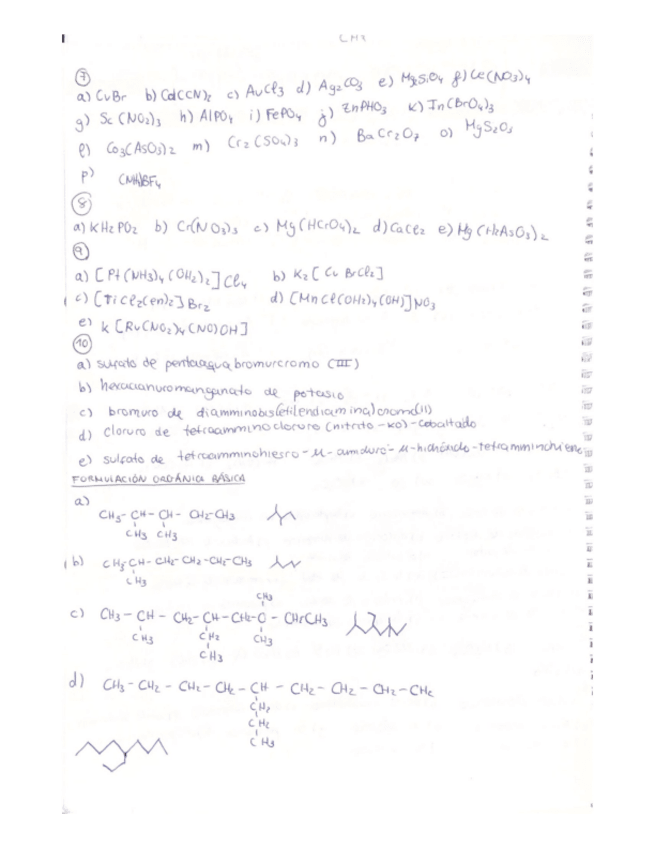 7
a) CuBr b) Cd(CN)2 c) AuCl3 d) Ag2CO3 e) MgSiO4 f) Ce(NO3)4
g) Sc(NO2)3 h) AlPO4 i) FePO4 j) ZnPHO3 k) In(BrO4)3
l) Co3(AsO3)2 m) Cr2(SO4)3 n) BaCr2O7 o) MgS2O5
p)
8
a) KH2PO2 b) Cr(NO3)3 c) Mg(HCrO4)2 d) CaCl2 e) Hg(H2AsO3)2
9
a) [Pt(NH3)4(OH2)2]Cl4 b) K2[CuBrCl2]
c) [TiCl2(en)2]Br2 d) [MnCl(OH2)4(OH)]NO3
e) K[Ru(NO2)4(NO)OH]
10
a) sulfato de pentaaquabromurcromo (III)
b) hexacianuromanganato de potasio
c) bromuro de diamminobis(etilendiamina)cromo(II)
d) cloruro de tetraamminocloruro(nitrito-KO)-cobaltado
e) sulfato de tetraamminohierro-μ-amiduro-μ-hidróxido-
FORMULACIÓN ORGÁNICA BÁSICA
a)
CH3-CH-CH-CH2-CH3
CH3 CH3
b) CH3CH-CH2-CH2-CH2-CH3
CH3
CH3
c) CH3-CH-CH2-CH-CH2-C-CH2CH3
CH3 CH2 CH3
CH3
d) CH3-CH2-CH2-CH2-CH-CH2-CH2-CH2-CH2
CH2
CH2
CH3